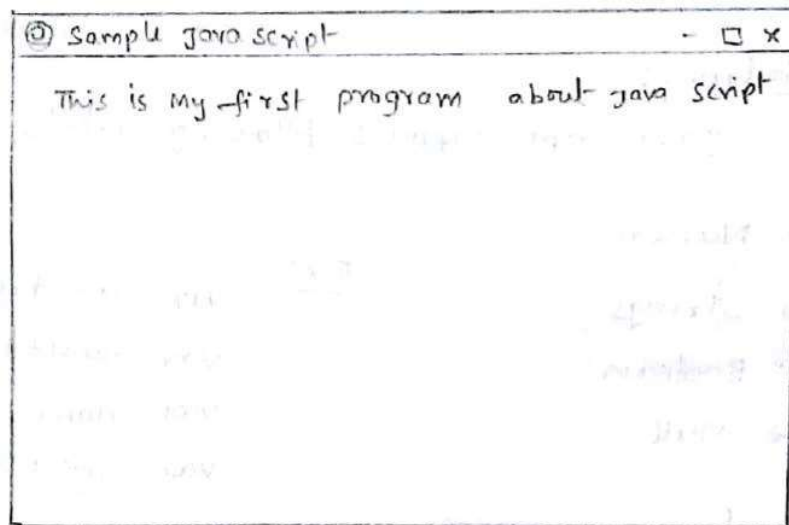 Sample Java script - □ x
This is my first program about Java script